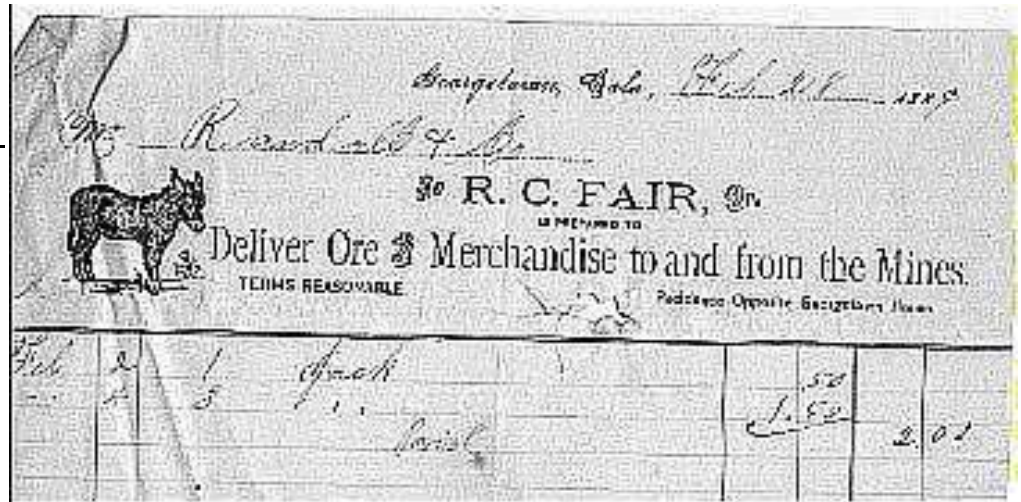 Georgetown, Colo., Feb 1889
M Randall & Co
To R. C. FAIR, Dr.
IS PREPARED TO
Deliver Ore & Merchandise to and from the Mines.
TERMS REASONABLE
Residence Opposite Georgetown House
Feb 2 1 Jack 50
3 " 1.50 2.00